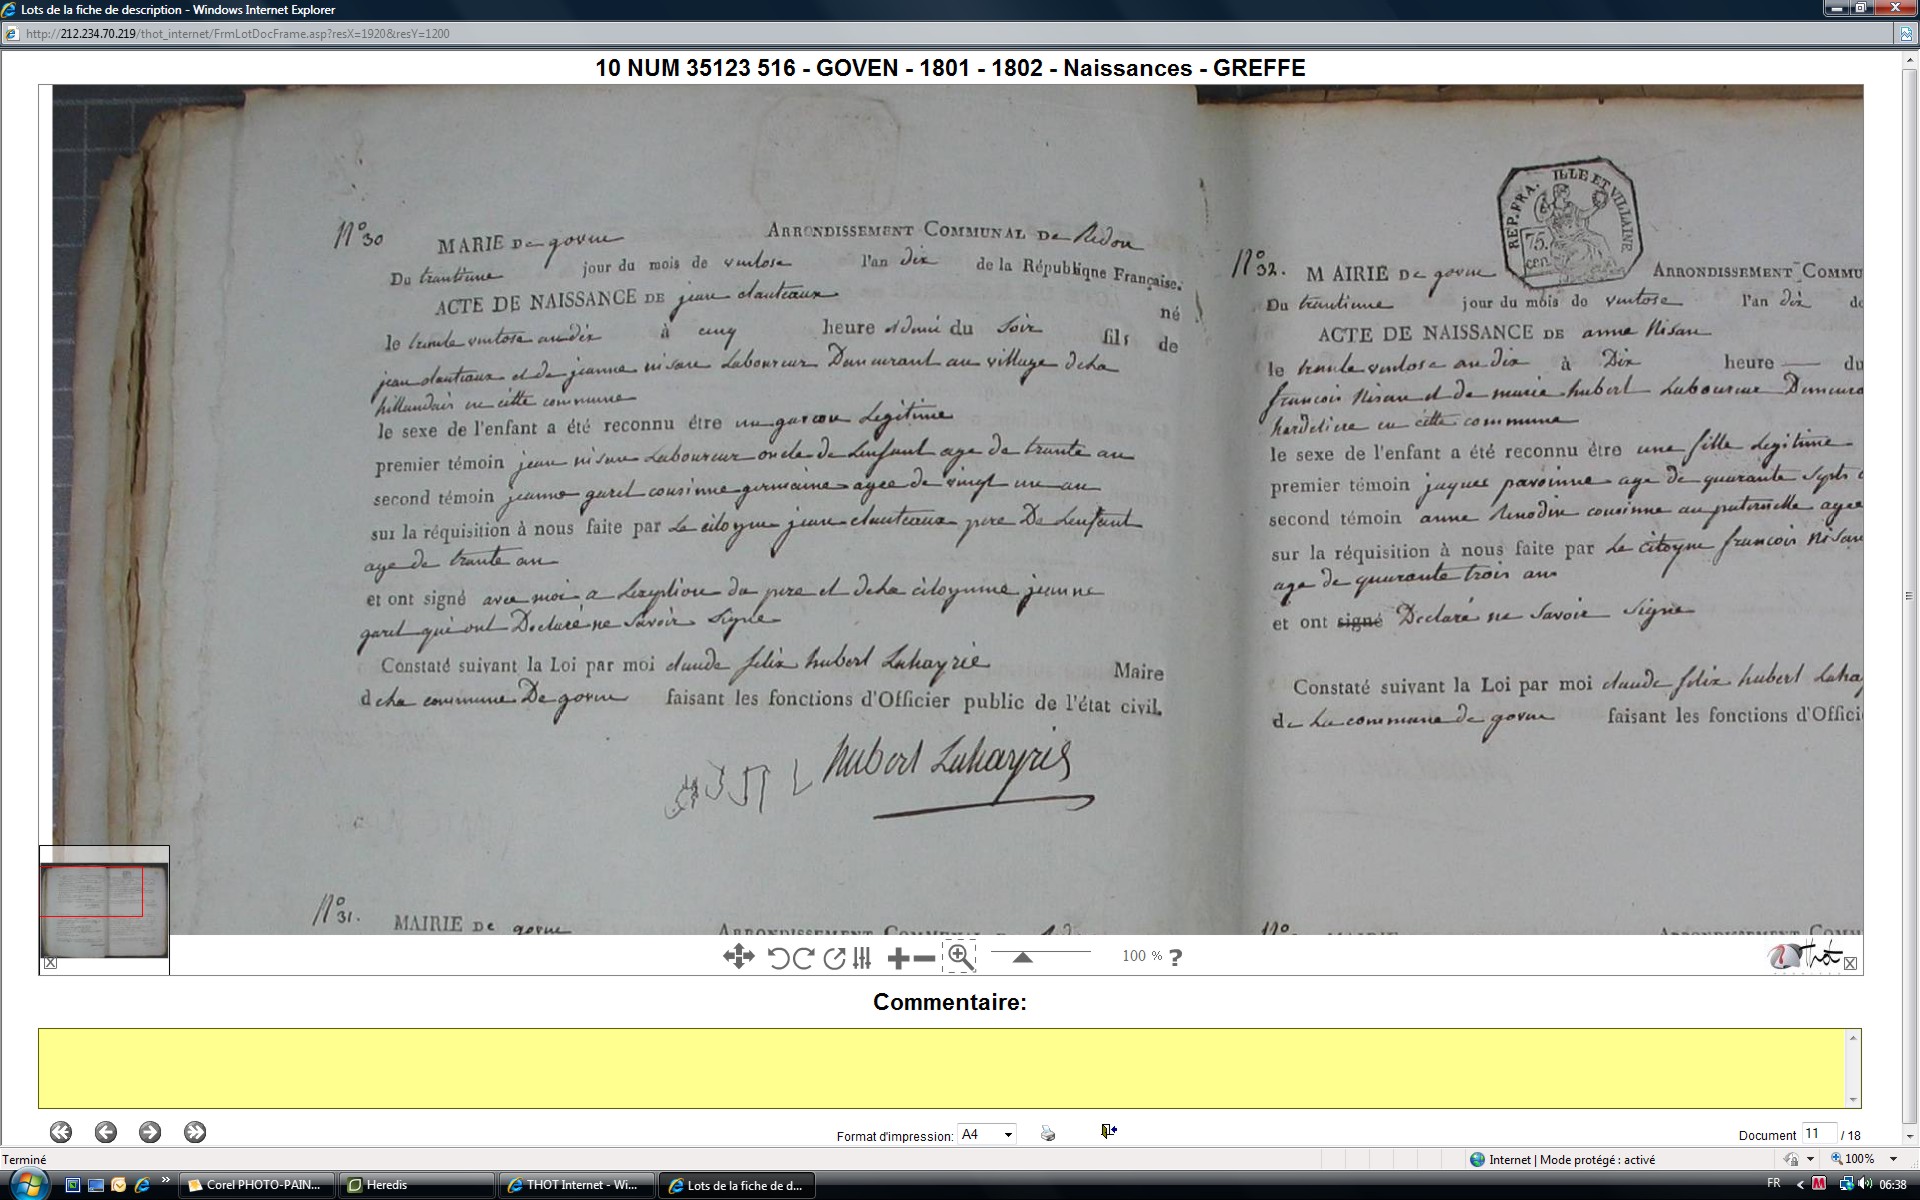 Lots de la fiche de description - Windows Internet Explorer
http://212.234.70.219/thot_internet/FrmLotDocFrame.asp?resX=1920&resY=1200
10 NUM 35123 516 - GOVEN - 1801 - 1802 - Naissances - GREFFE
N° 30
MARIE De govene ARRONDISSEMENT COMMUNAL De Redon
Du trantieme jour du mois de ventose l'an dix de la République Française.
ACTE DE NAISSANCE DE jean clauteaux né
le trente ventose an dix à cinq heure et demi du Soir fils de
jean clauteaux et de jeanne nisare Laboureur Demeurant au village dela
en cette commune
le sexe de l'enfant a été reconnu être un garcon Legitime
premier témoin jean nisare Laboureur oncle de Lenfant age de trante an
second témoin jeanne garel cousinne germaine agee de vingt un an
sur la réquisition à nous faite par Le citoyen jean clauteaux pere De Lenfant
age de trante an
et ont signé avec moi a Lexeption du pere et dela citoyenne jeanne
garel qui ont Declaré ne Savoir Signe
Constaté suivant la Loi par moi claude felix hubert Lahayrie Maire
dela commune De govene faisant les fonctions d'Officier public de l'état civil.
hubert Lahayrie
N° 31.
MAIRIE De govene ARRONDISSEMENT COMMUNAL
REP. FRA. ILLE ET VILLAINE
75 cen.
N° 32.
MAIRIE De govene ARRONDISSEMENT COMMU
Du trantieme jour du mois de ventose l'an dix de
ACTE DE NAISSANCE DE anne Nisan
le trante ventose an dix à Dix heure du
francois Nisan et de marie hubert Laboureur Demeura
hardeliere en cette commune
le sexe de l'enfant a été reconnu être une fille Legitime
premier témoin jaques pavoinne age de quarante Septs
second témoin anne Renodin cousinne au paternelle agee
sur la réquisition à nous faite par Le citoyen francois Nisan
age de quarante trois ans
et ont signé Declaré ne Savoir Signe
Constaté suivant la Loi par moi claude felix hubert Laha
de La commune de govene faisant les fonctions d'Offici
N° MAIRIE ARRONDISSEMENT COMM
100 % ?
Thot
Commentaire:
Format d'impression: A4
Document 11 / 18
Terminé
Internet | Mode protégé : activé
100%
Corel PHOTO-PAIN...
Heredis
THOT Internet - Wi...
Lots de la fiche de d...
FR
06:38